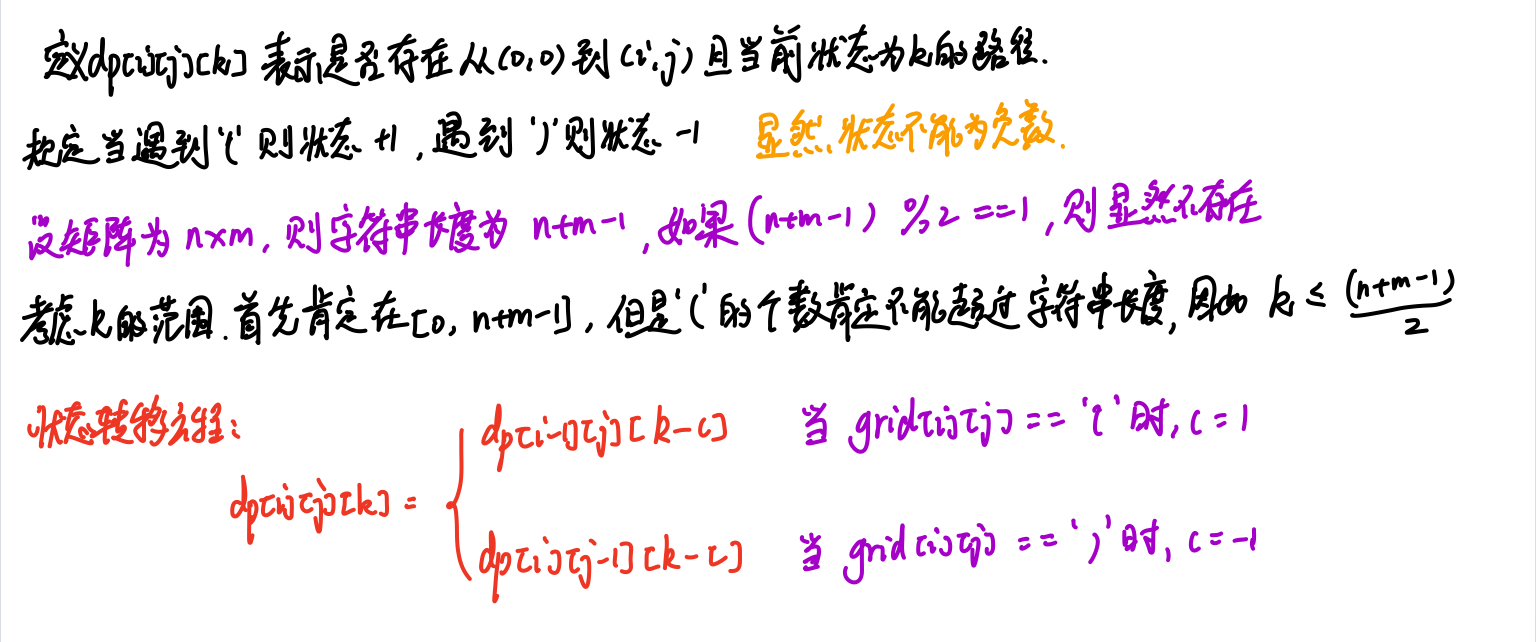 定义dp[i][j][k] 表示是否存在从(0,0)到(i,j)且当前状态为k的路径.
规定当遇到'('则状态 +1 , 遇到')'则状态 -1 显然,状态不能为负数.
设矩阵为 n×m, 则字符串长度为 n+m-1 , 如果 (n+m-1) % 2 == 1 , 则显然不存在
考虑k的范围. 首先肯定在[0, n+m-1] , 但是'('的个数肯定不能超过字符串长度, 因此 k ≤ (n+m-1)/2
状态转移方程:
dp[i-1][j][k-c] 当 grid[i][j] == '(' 时, c = 1
dp[i][j][k] = {
dp[i][j-1][k-c] 当 grid[i][j] == ')' 时, c = -1